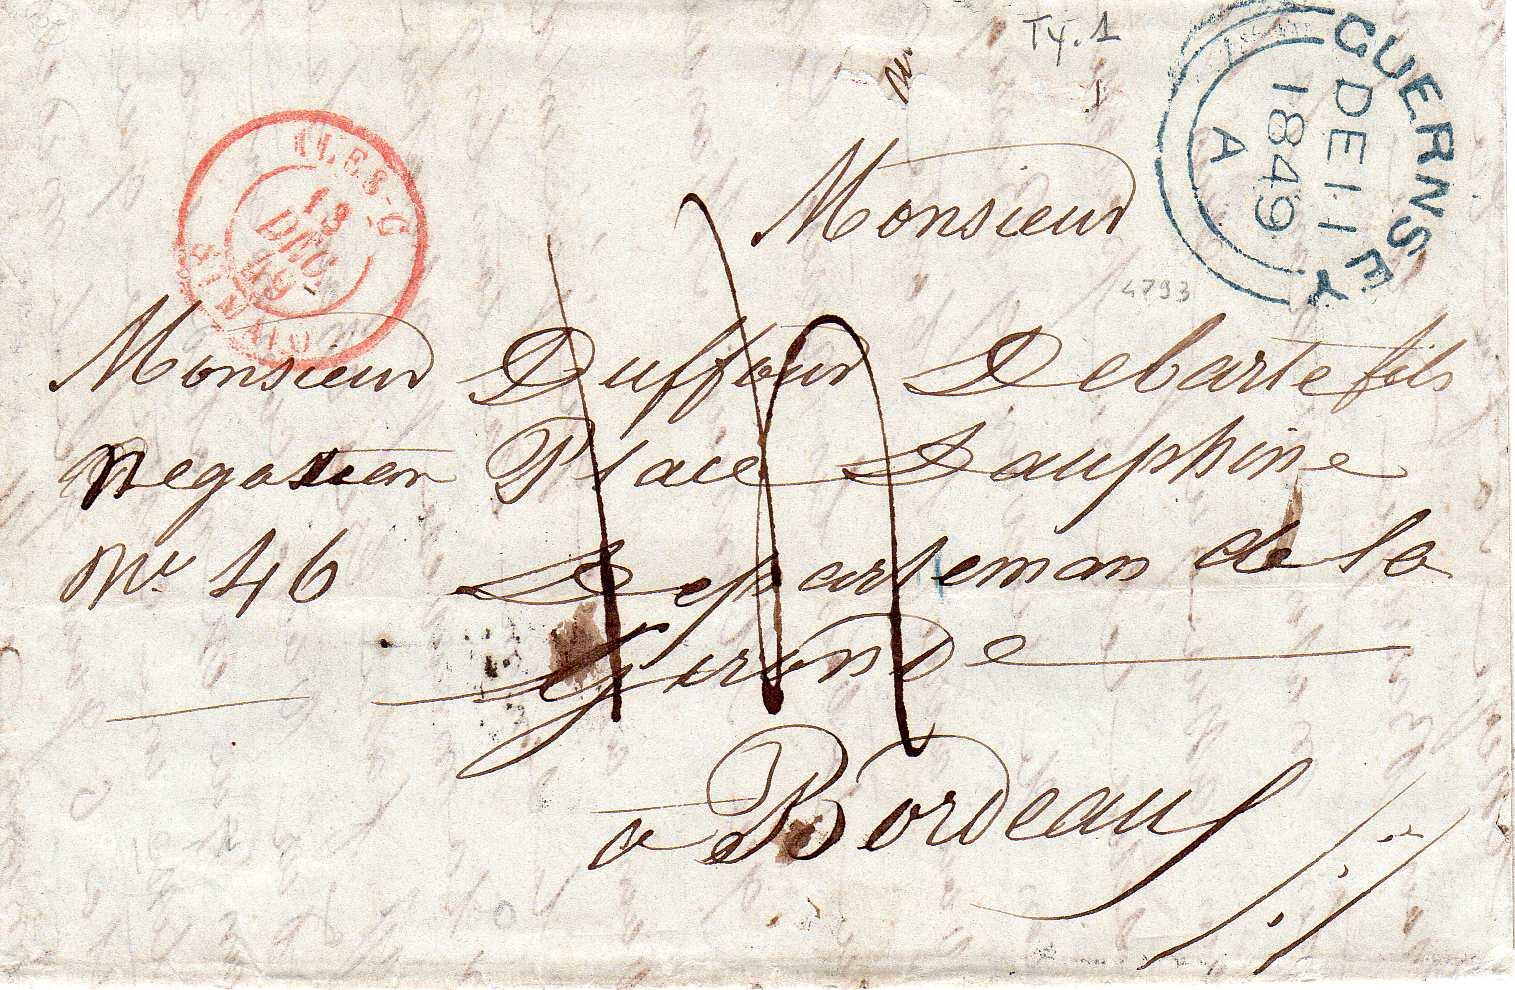 Ty. 1
1
GUERNSEY
DE 11
1849
A
ILES-C
13
DEC.
49
Monsieur
4793
Monsieur Duffour Debarte fils
Place Dauphine
No. 46 Departeman de la
Gironde
a Bordeaux